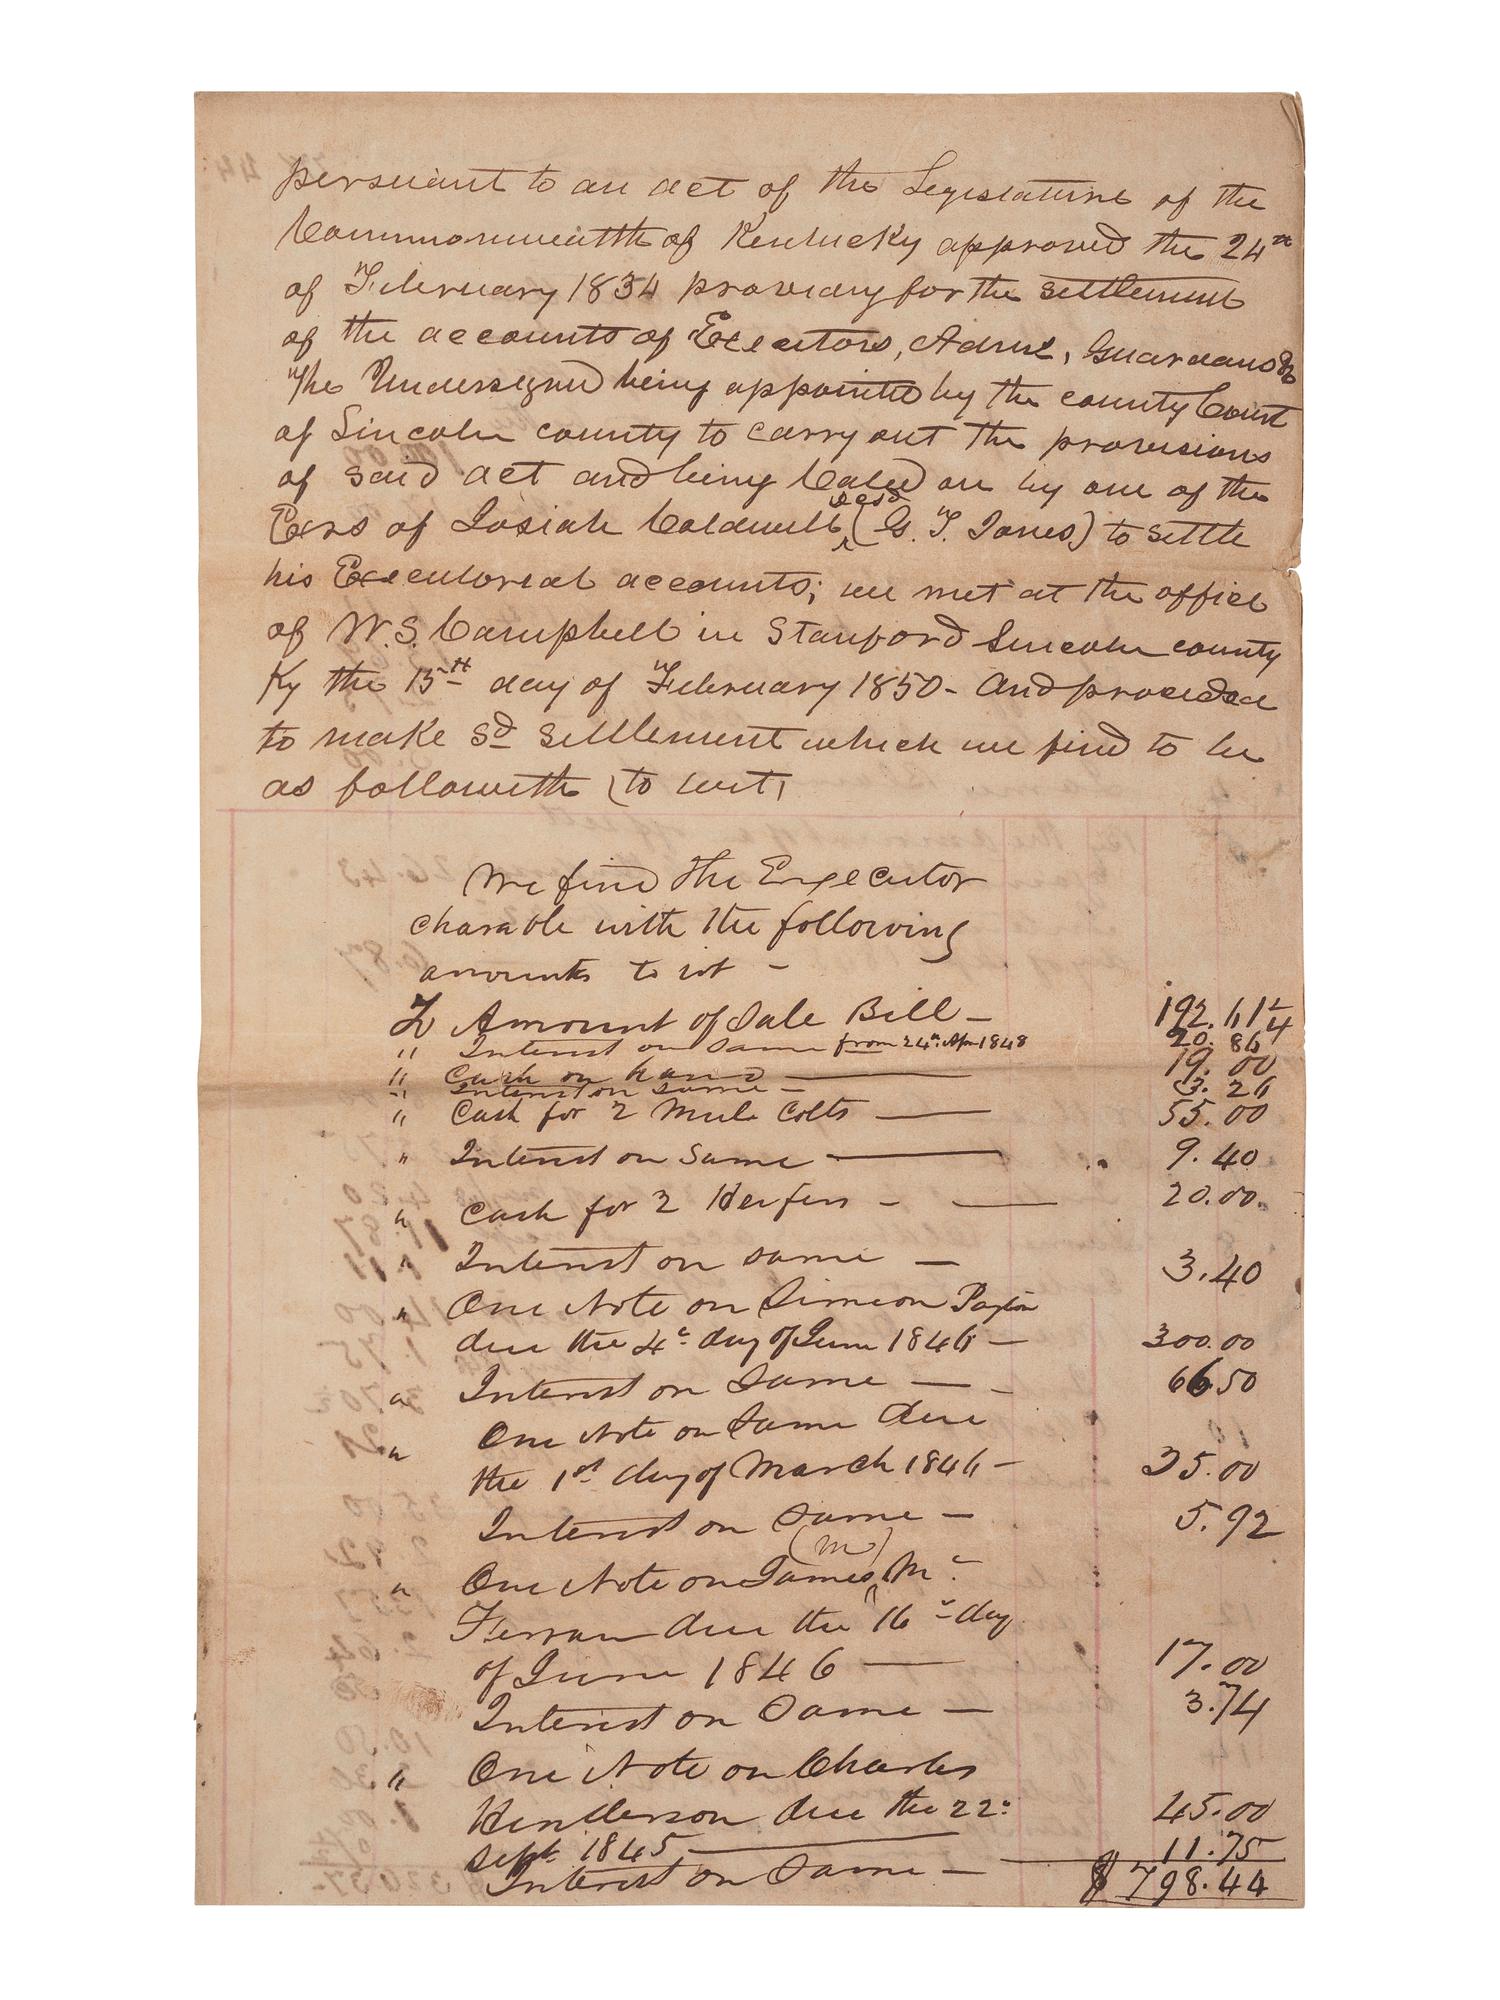 persuant to an act of the Legislature of the
Commonwealth of Kentucky approved the 24th
of February 1834 providing for the settlement
of the accounts of Executors, Admr, Guardians &c
The Undersigned being appointed by the county Court
of Lincoln county to carry out the provisions
of said act and being Called on by one of the
Exrs of Josiah Caldwell decsd (G. T. Jones) to settle
his Executorial accounts; we met at the office
of W. S. Campbell in Stanford Lincoln county
Ky the 15th day of February 1850 - And proceded
to make sd settlement which we find to be
as followeth (to wit,
We find the Executor
charable with the following
amounts to wit -
To Amount of Sale Bill - 192.61 1/4
" Interest on same from 24th Apr 1848 20.86
" Cash on hand 19.00
" Interest on same - 3.26
" Cash for 2 Mule Colts 55.00
" Interest on same 9.40
" Cash for 2 Heifers - 20.00
" Interest on same - 3.40
" One Note on Simeon Payton
due the 4th day of June 1846 - 300.00
" Interest on Same - 66.50
" One Note on Same due
the 1st day of March 1846 - 35.00
Interest on Same - 5.92
" One Note on James (M) Mc
Ferran due the 16th day
of June 1846 17.00
Interest on Same - 3.74
" One Note on Charles
Henderson due the 22d 45.00
Sept 1845
Interest on Same - 11.75
$ 798.44